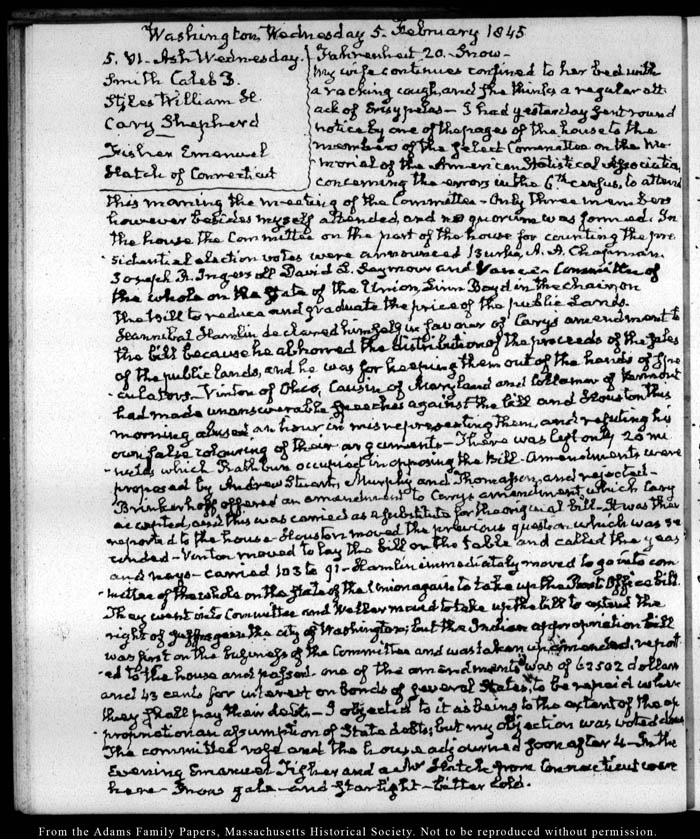 Washington, Wednesday 5. February 1845
5. VI. Ash Wednesday.
Smith Caleb B.
Stiles William H.
Cary Shepherd
Fisher Emanuel
Hatch of Connecticut
Fahrenheit 20. Snow—
My wife continues confined to her bed with
a racking cough, and she thinks a regular att
ack of Erisypelas— I had yesterday sent round
notice by one of the pages of the house to the
members of the select Committee on the Me-
morial of the American Statistical Association
concerning the errors in the 6th census, to attend
this morning the meeting of the Committee— Only three members
however besides myself attended, and no quorum was formed. In
the house, the Committee on the part of the house for counting the pre
sidential election votes were announced Burke, A. A. Chapman.
Joseph R. Ingersoll David L. Seymour and Vance in Committee of
the whole on the State of the Union, Linn Boyd in the chair, on
the bill to reduce and graduate the price of the public Lands.
Hannibal Hamlin declared himself in favour of Cary's amendment to
the bill because he abhorred the distribution of the proceeds of the sales
of the public lands, and he was for keeping them out of the hands of spe
culators— Vinton of Ohio, Causin of Maryland and Collamer of Vermont
had made unanswerable speeches against the bill and Houston this
morning abused an hour in misrepresenting them, and refuting his
own false colouring of their arguments— There was left only 20 mi
nutes which Rathbun occupied in opposing the Bill. Amendments were
proposed by Andrew Stuart, Murphy and Thomasson, and rejected—
Brinkerhoff offered an amendment to Cary's amendment, which Cary
accepted, and this was carried as a substitute for the original bill— It was then
reported to the house— Houston moved the previous question which was se
conded— Vinton moved to lay the bill on the table and called the yeas
and nays— carried 103 to 91— Hamlin immediately moved to go into com
mittee of the whole on the state of the Union again to take up the Post Office bill.
They went into Committee and Weller moved to take up the bill to extend the
right of suffrage in the city of Washington; but the Indian appropriation bill
was first on the business of the Committee and was taken up, amended, report
ed to the house and passed. one of the amendments was of 62502 dollars
and 43 cents for interest on bonds of several States, to be repaid when
they shall pay their debts— I objected to it as being to the extent of the ap
propriation an assumption of State debts; but my objection was voted down
The committee rose and the house adjourned soon after 4— In the
Evening Emanuel Fisher and a Mr Hatch from Connecticut were
here— Snow gale— and starlight— bitter cold.
From the Adams Family Papers, Massachusetts Historical Society. Not to be reproduced without permission.